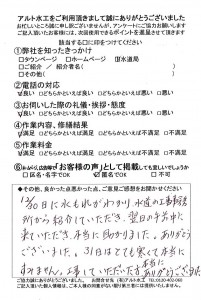 アルト水工をご利用頂きまして誠にありがとうございました
お忙しいところ誠に申し訳ございませんが、アンケートにご協力お願いします
ご記入頂いたお客様は、次回使用できるポイントを進呈させて頂きます
該当する□に印をつけてください
①弊社を知ったきっかけ
□タウンページ □ホームページ ☑水道局
□ご紹介／紹介者名（ ）
□その他（ ）
②電話の対応
☑良い □どちらかといえば良い □どちらかといえば悪い □悪い
③お伺いした際の礼儀・挨拶・態度
☑良い □どちらかといえば良い □どちらかといえば悪い □悪い
④作業内容、修繕結果
☑満足 □どちらかといえば満足 □どちらかといえば不満足 □不満足
⑤作業料金
☑満足 □どちらかといえば満足 □どちらかといえば不満足 □不満足
「お客様の声」として掲載しても宜しいでしょうか
□匿名で OK
□不可
◆その他、良かった点悪かった点、ご意見ご感想をお聞かせください
12/30日に水もれがわかり 水道の工事事務
所から紹介していただき、翌日の午前中に
来ていただき、本当に助かりました。ありがとう
ございました。31日はとても寒くて本当に
すみません。工事していただいた方
本当に
ありがとうございます